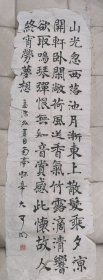 山光忽西落池月漸東上散髮乘夕涼
開軒臥閑敞荷風送香氣竹露滴清響
欲取鳴琴彈恨無知音賞感此懷故人
終宵勞夢想 孟浩然夏日南亭懷辛大